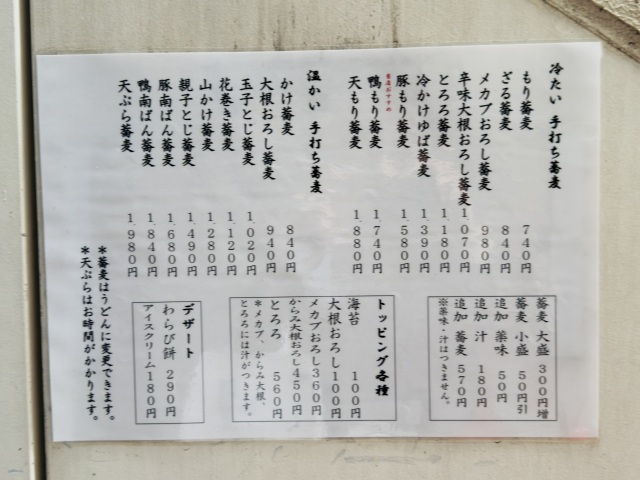 冷たい 手打ち蕎麦
もり蕎麦 740円
ざる蕎麦 840円
メカブおろし蕎麦 980円
辛味大根おろし蕎麦 1,070円
とろろ蕎麦 1,180円
冷かけゆば蕎麦 1,390円
豚もり蕎麦 1,580円
鴨もり蕎麦 1,740円
天もり蕎麦 1,880円
温かい 手打ち蕎麦
かけ蕎麦 840円
大根おろし蕎麦 940円
玉子とじ蕎麦 1,020円
花巻き蕎麦 1,120円
山かけ蕎麦 1,280円
親子とじ蕎麦 1,490円
豚南ばん蕎麦 1,680円
鴨南ばん蕎麦 1,840円
天ぷら蕎麦 1,980円
蕎麦 大盛 300円増
蕎麦 小盛 50円引
追加 薬味 50円
追加 汁 180円
追加 蕎麦 570円
※薬味・汁はつきません。
トッピング各種
海苔 100円
大根おろし100円
メカブおろし360円
からみ大根おろし450円
とろろ 560円
*メカブ、からみ大根、
とろろには汁がつきます。
デザート
わらび餅 290円
アイスクリーム180円
*蕎麦はうどんに変更できます。
*天ぷらはお時間がかかります。